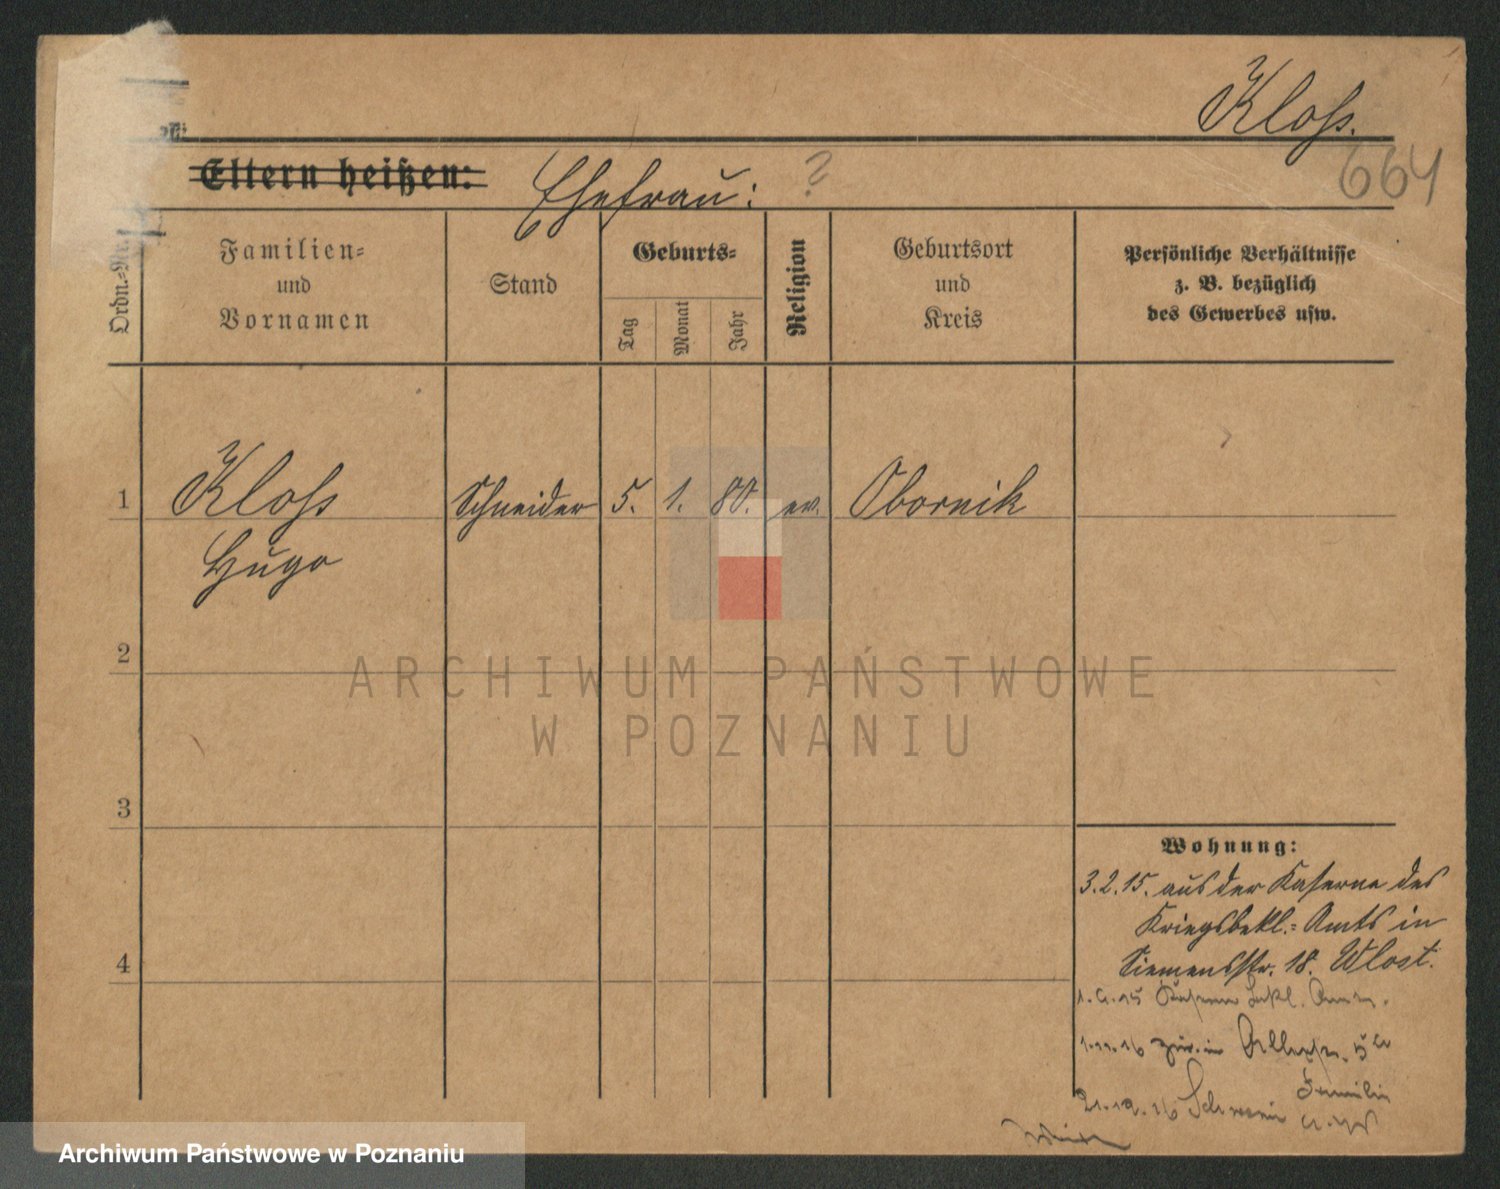 Kloss.
664
Eltern heißen:
Ehefrau: ?
Ordn.-Nr.
Familien-
und
Vornamen
Stand
Geburts-
Tag
Monat
Jahr
Religion
Geburtsort
und
Kreis
Persönliche Verhältnisse
z. B. bezüglich
des Gewerbes usw.
1 Kloss Schneider 5. 1. 80. ev. Obornik
Hugo
2
ARCHIWUM PAŃSTWOWE
W POZNANIU
3
Wohnung:
3.2.15. aus der Kaserne des
Kriegsbekl.-Amts in
4
Siemensstr. 18. Wlost.
Kaserne Bekl.
1.11.16 zur. in
21.12.16 Familie
Archiwum Państwowe w Poznaniu